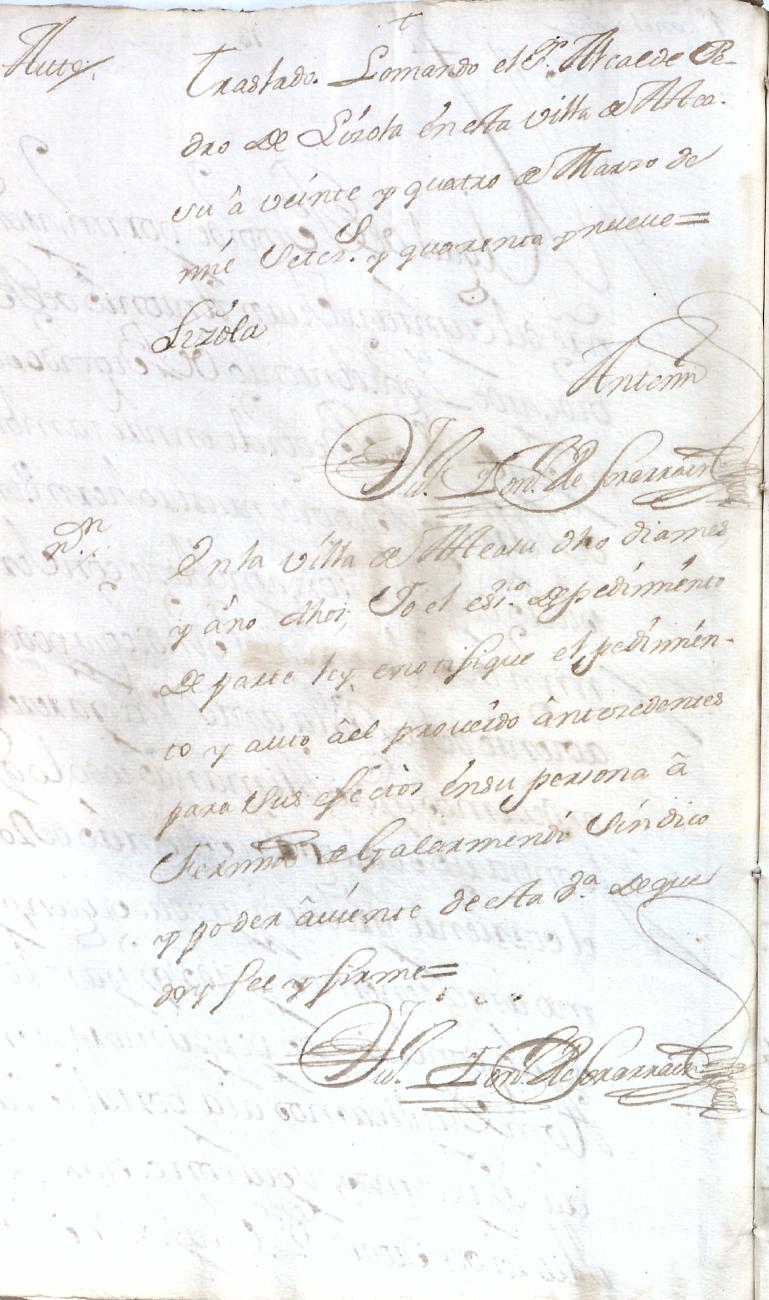 Auto.
Traslado. Lo mando el Sr. Alcalde Pe-
dro de Lizola en esta villa de Alea-
su â veinte y quatro de Marzo de
mil setecs. y quarenta y nueve=
Lizola
Antemi
de Sorarrain
nn.
En la villa de Aleasu dho dia mes
y año dhos, Yo el esno. de pedimento
de parte ley e notifique el pedimen-
to y auto âel proveido ântecedentes
para sus efectos en su persona â
Fermin de Galarmendi Sindico
y poder âviente de esta da. de que
doy fee y firme=
de Sorarrain